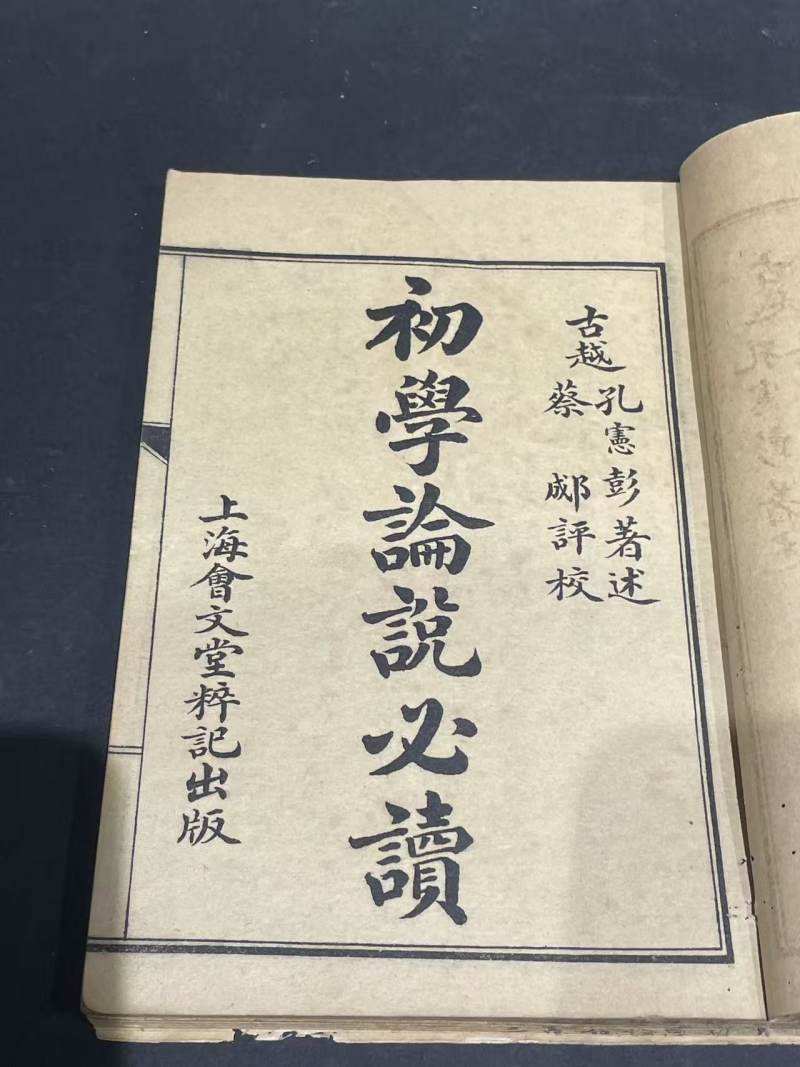 古越
孔憲彭著述
蔡郕評校
初學論說必讀
上海會文堂粹記出版